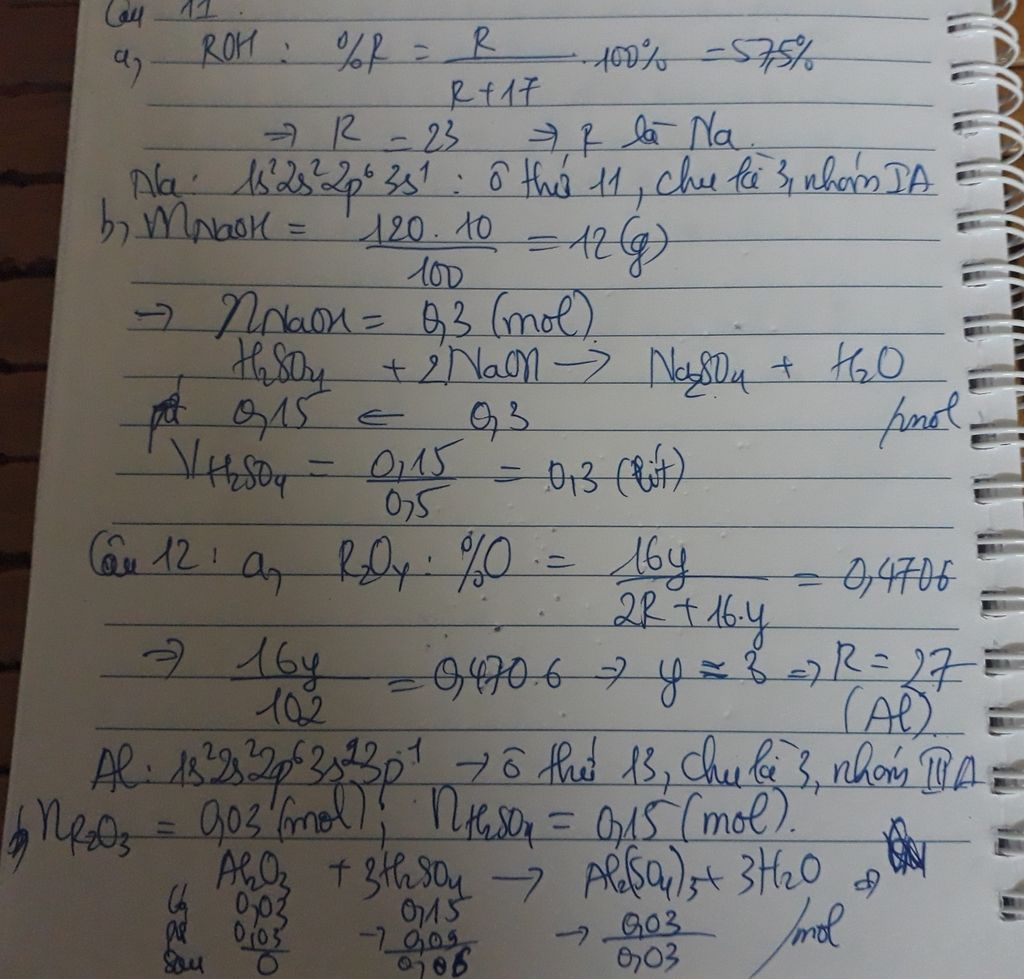 Câu 11
a, ROH : %R = R / (R+17) · 100% = 57,5%
⇒ R = 23 ⇒ R là Na.
Na: 1s²2s²2p⁶3s¹ : ô thứ 11, chu kì 3, nhóm IA
b, mNaOH = 120.10 / 100 = 12(g)
→ nNaOH = 0,3 (mol)
H₂SO₄ + 2NaOH → Na₂SO₄ + H₂O
pứ 0,15 ← 0,3 /mol
VH₂SO₄ = 0,15 / 0,5 = 0,3 (lít)
Câu 12: a, R₂Oy : %O = 16y / (2R + 16.y) = 0,4706
⇒ 16y / 102 = 0,470.6 ⇒ y ≈ 3 ⇒ R = 27 (Al).
Al: 1s²2s²2p⁶3s²3p¹ → ô thứ 13, chu kì 3, nhóm IIIA
b, nR₂O₃ = 0,03 (mol); nH₂SO₄ = 0,15 (mol).
Al₂O₃ + 3H₂SO₄ → Al₂(SO₄)₃ + 3H₂O ⇒
0,03 0,15
pứ 0,03 → 0,09 → 0,03 /mol
sau 0 0,06 0,03